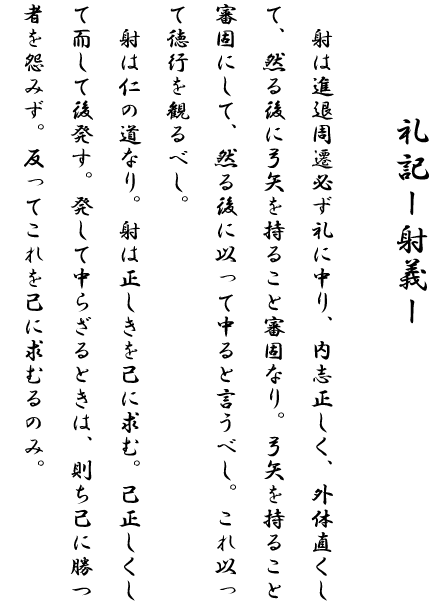 礼記ー射義ー
射は進退周還必ず礼に中り、内志正しく、外体直くし
て、然る後に弓矢を持ること審固なり。弓矢を持ること
審固にして、然る後に以って中ると言うべし。これ以っ
て徳行を観るべし。
射は仁の道なり。射は正しきを己に求む。己正しくし
て而して後発す。発して中らざるときは、則ち己に勝つ
者を怨みず。反ってこれを己に求むるのみ。